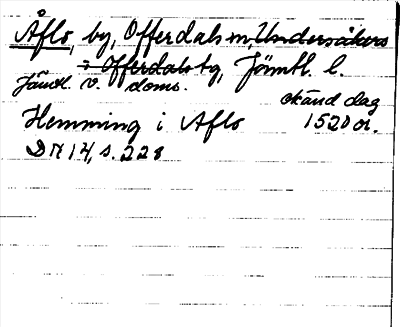 Åflo, by, Offerdals sn, Undersåkers
o Offerdals tg, Jämtl. l.
Jämtl. v. doms.
okänd dag
Hemming i Aflo 1520 or.
DN 14, s. 228